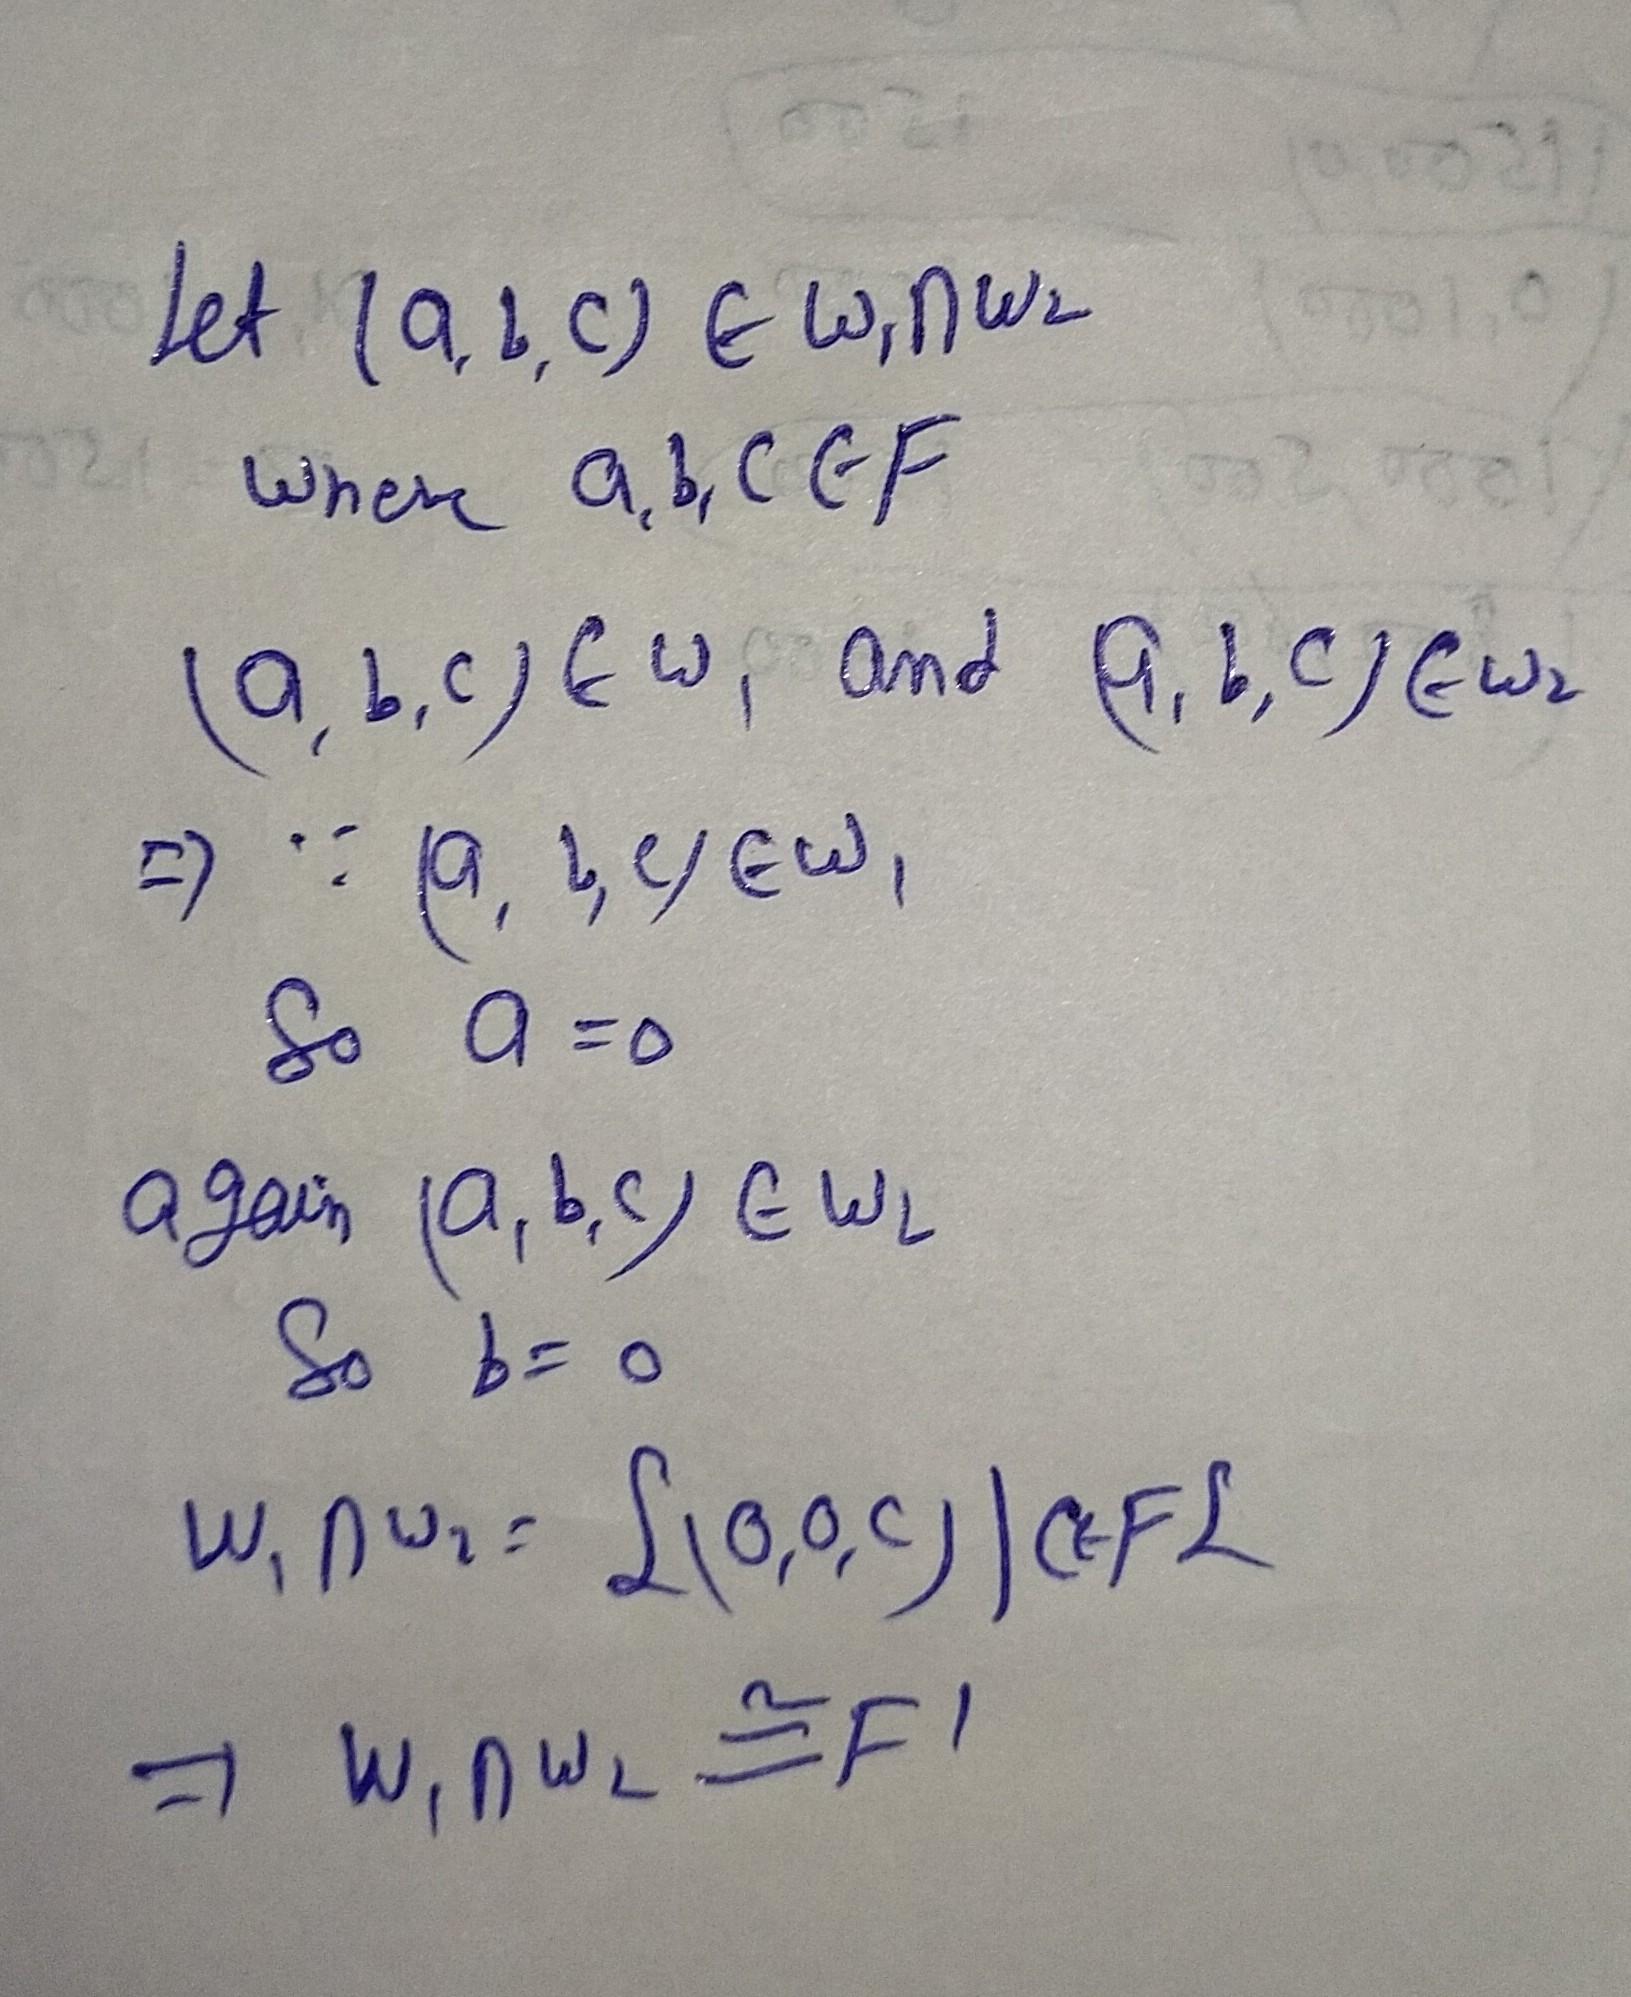 Let (a,b,c) ∈ W₁∩W₂
where a,b,c ∈ F
(a,b,c) ∈ W₁ and (a,b,c) ∈ W₂
⇒ ∵ (a,b,c) ∈ W₁
So a=0
again (a,b,c) ∈ W₂
So b=0
W₁∩W₂ = {(0,0,c) | c∈F}
⇒ W₁∩W₂ ≅ F¹